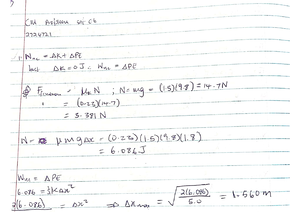 2224721
1. Wnc = ΔK + ΔPE
but ΔK = 0J ∴ Wnc = ΔPE
Ffriction = μk N ; N = mg = (1.5)(9.8) = 14.7N
= (0.23)(14.7)
= 3.381N
μmgΔx = (0.23)(1.5)(9.8)(1.8)
= 6.086J
Wnc = ΔPE
6.086 = ½KΔx²
2(6.086) = Δx² ⇒ Δxmax = √2(6.086)/5.0 = 1.560m